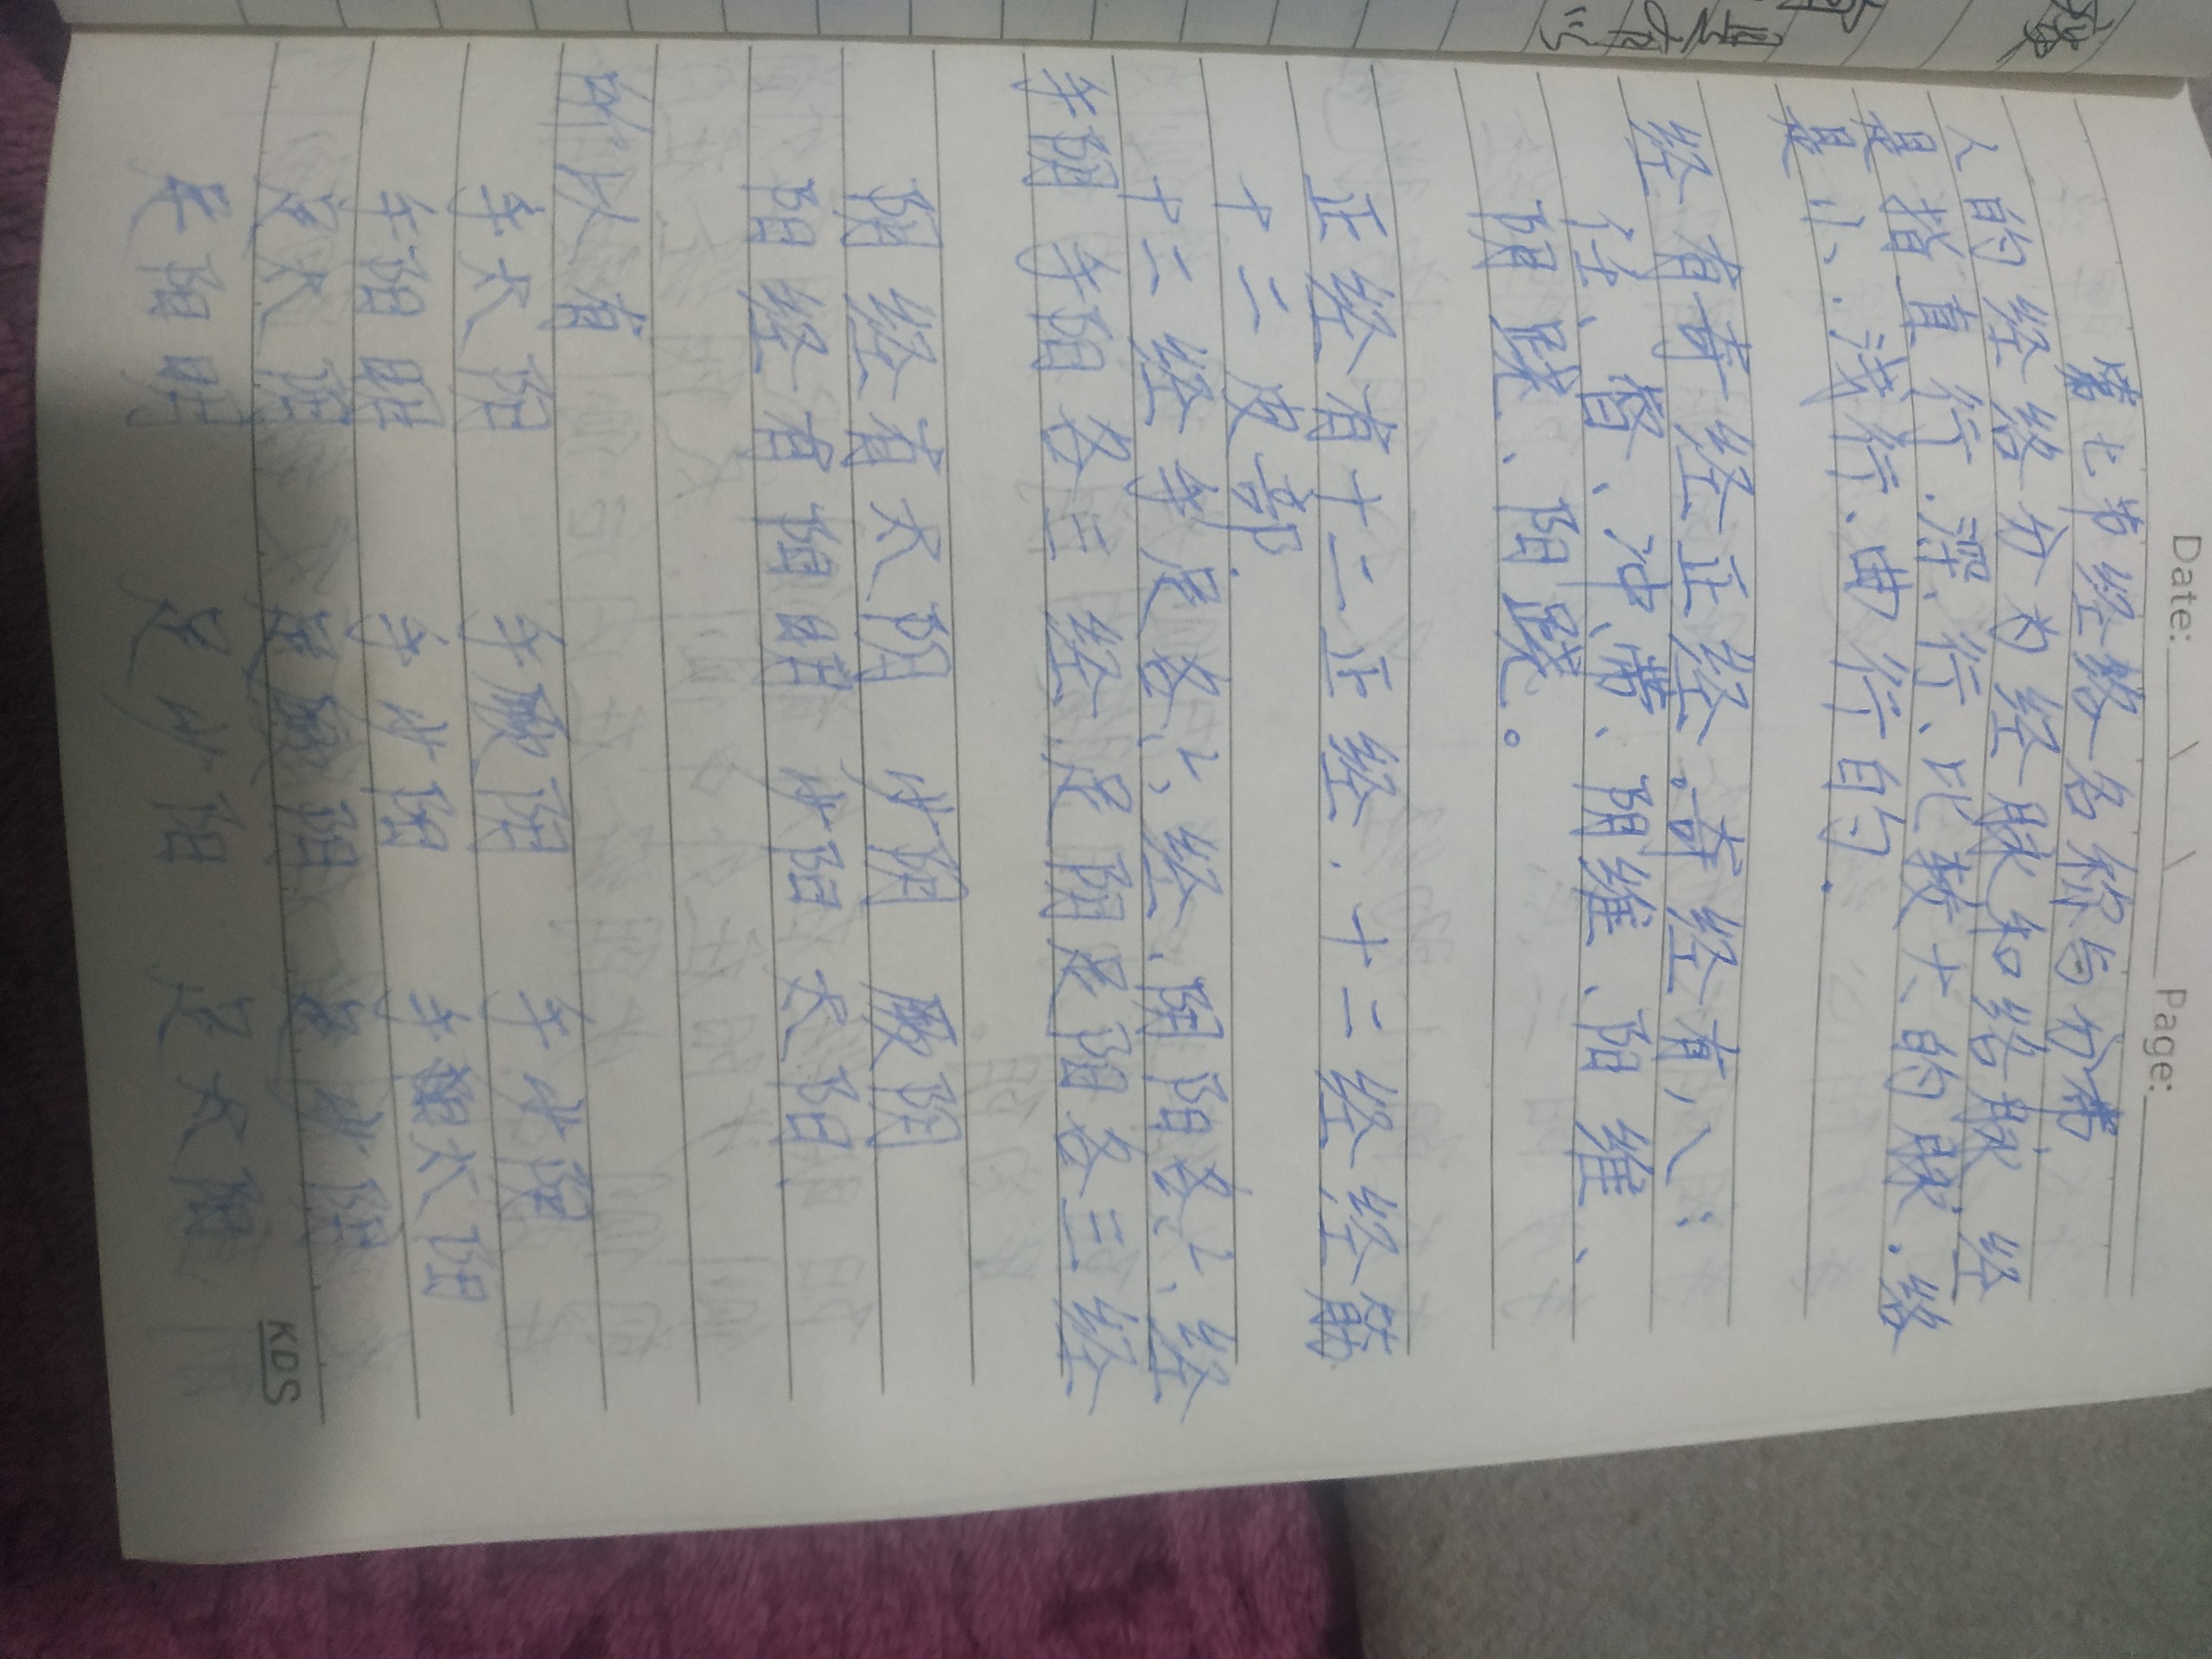 Date: Page:
第七节 经络名称与分布
人的经络分为经脉和络脉,经
是指直行.深行、比较大的脉.络
是小.浅行、曲行的.
经有奇经正经.奇经有八:
任、督、冲、带、阴维、阳维、
阴跷、阳跷。
正经有十二正经.十二经经筋
十二皮部.
十二经手足各六经,阴阳各六经
手阴手阳各三经.足阴足阳各三经
阴经有太阴 少阴 厥阴
阳经有阳明 少阳 太阳.
所以有
手太阴 手厥阴 手少阴
手阳明 手少阳 手太阳
足太阴 足厥阴 足少阴
足阳明 足少阳 足太阳
KDS